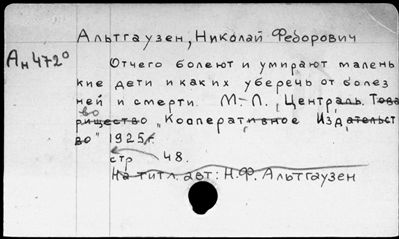 Альтгаузен, Николай Федорович
Ан 472º
Отчего болеют и умирают малень
кие дети и каких уберечь от болез
ней и смерти. М.-Л., Централь. Това
во
рищество "Кооперативное Издательст
во" 1925г.
стр 48.
На титл. авт: Н.Ф. Альтгаузен